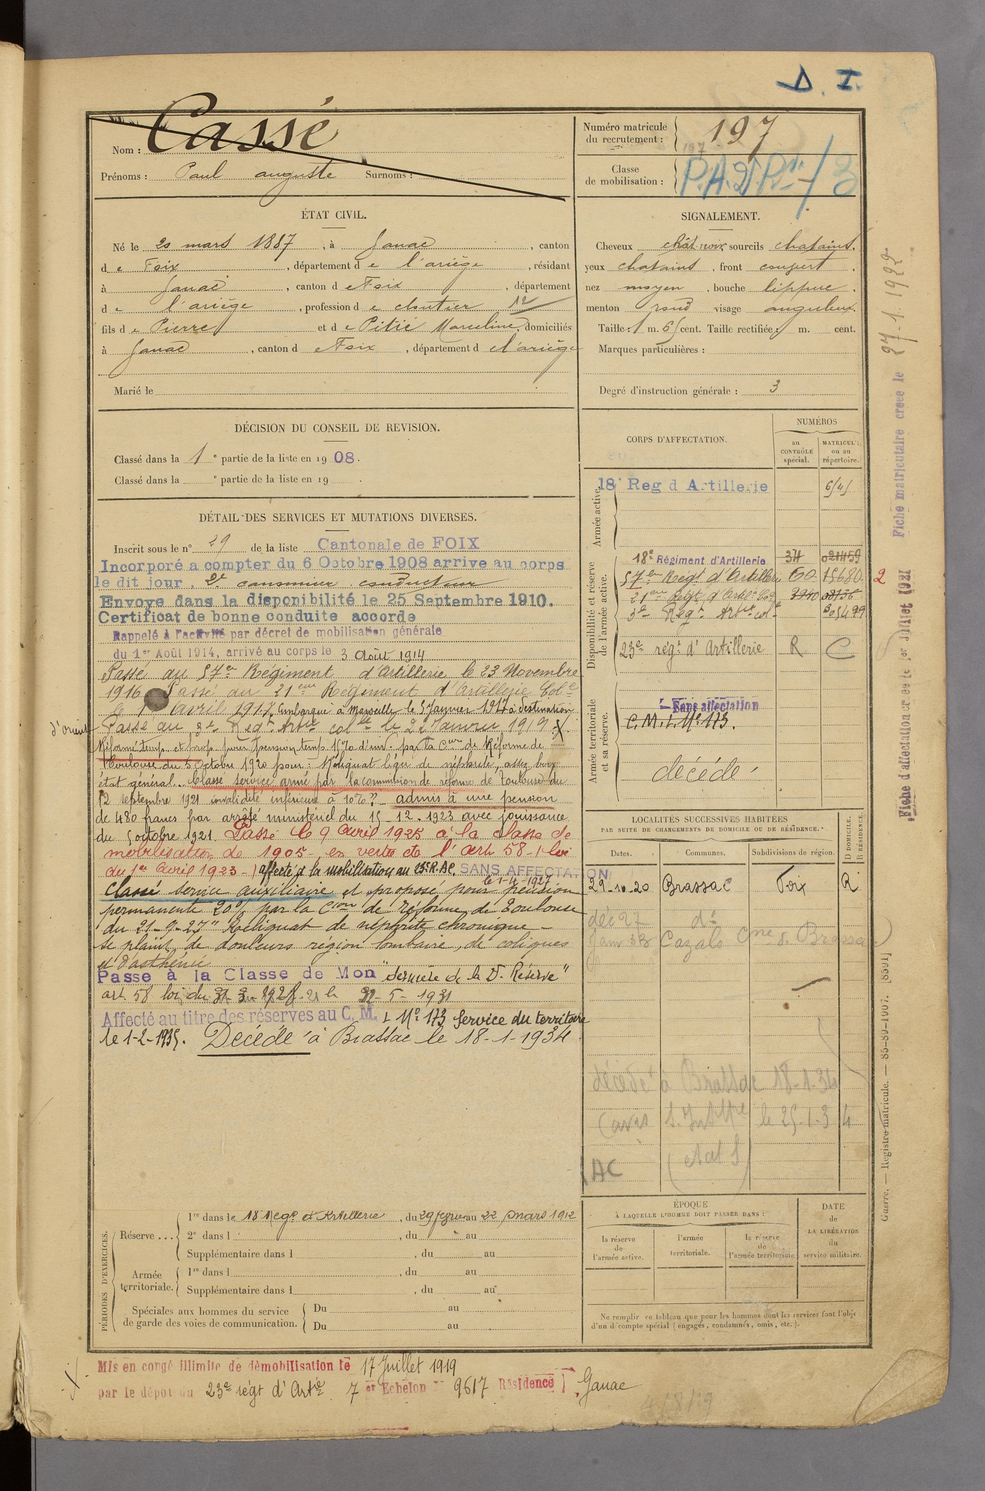 D. I.
Nom : Cassé
Prénoms : Paul auguste Surnoms :
Numéro matricule du recrutement : 197
Classe de mobilisation :
ÉTAT CIVIL.
Né le 20 mars 1887, à Ganac, canton
de Foix, département de l'ariège, résidant
à Ganac, canton de Foix, département
de l'ariège, profession de
fils de Pierre et de Pitié Marceline, domiciliés
à Ganac, canton de Foix, département de l'ariège
Marié le
SIGNALEMENT.
Cheveux sourcils chatains.
yeux chatains, front
nez moyen, bouche lippue.
menton rond visage anguleux
Taille : 1 m. 61 cent. Taille rectifiée : m. cent.
Marques particulières :
Degré d'instruction générale : 3
DÉCISION DU CONSEIL DE REVISION.
Classé dans la 1e partie de la liste en 1908.
Classé dans la e partie de la liste en 19
DÉTAIL DES SERVICES ET MUTATIONS DIVERSES.
Inscrit sous le n° 29 de la liste Cantonale de FOIX
Incorporé a compter du 6 Octobre 1908 arrive au corps
le dit jour. 2e canonnier conducteur
Envoye dans la disponibilité le 25 Septembre 1910.
Certificat de bonne conduite accorde
Rappelé à l'activité par décret de mobilisation générale
du 1er Août 1914, arrivé au corps le 3 Août 1914
Passé au 57e Régiment d'Artillerie le 23 Novembre
1916 Passé au 21eme Régiment d'Artillerie Colle
le 1 avril 1917. Embarqué à Marseille le 5 Janvier 1917 à destination
d'orient
Passé au 3e Reg. Artie colle le 22 Janvier 1919
Réformé temp. et prop. pour pension temp. 15% d'inv. par la Con de Réforme de
Toulouse du 5 Octobre 1920 pour : Reliquat léger de néphrite, assez bon
état général. Classé service armé par la commission de réforme de Toulouse du
12 septembre 1921 invalidité inférieure à 10% - admis à une pension
de 480 francs par arrêté ministériel du 15-12-1923 avec jouissance
du 5 octobre 1921. Passé le 9 Avril 1925 à la classe de
mobilisation de 1905, en vertu de l'art 58 - loi
du 1er Avril 1923 - affecté à la mobilisation au SANS AFFECTATION
le 1-4-1927
Classé service auxiliaire et proposé pour pension
permanente 20% par la Cion de Réforme de Toulouse
du 21-9-27 "Reliquat de néphrite chronique -
se plaint de douleurs région lombaire, de coliques
et d'asthénie
Passe à la Classe de Mon "dernière de la 2e Réserve"
art 58 loi du 31-3-1928 le 22-5-1931
Affecté au titre des réserves au C. M. I No 173 Service du territoire
le 1-2-1935. Décédé à Brassac le 18-1-1934.
CORPS D'AFFECTATION.
NUMÉROS
au CONTRÔLE spécial.
MATRICULE ou au répertoire.
Armée active.
18e Reg d Artillerie
Disponibilité et réserve de l'armée active.
18e Régiment d'Artillerie 34
57e Regt d'Artillerie 60 15680
3e Regt Artie cole
23e regt d'Artillerie R C
Armée territoriale et sa réserve.
Sans affectation
C.M.I. No 173.
décédé
LOCALITÉS SUCCESSIVES HABITÉES
PAR SUITE DE CHANGEMENTS DE DOMICILE OU DE RÉSIDENCE.
Dates. Communes. Subdivisions de région. D DOMICILE. R RÉSIDENCE.
28-10-20 Brassac Foix R
déc 27 do
Janv 33 Cazals Cne de Brassac
décédé à Brassac 18-1-34
le 25-1-34
AC
PÉRIODES D'EXERCICES.
Réserve... 1re dans le 18 Regt d'Artillerie, du 29 fevrier au 22 mars 1912
2e dans l, du au
Supplémentaire dans l, du au
Armée territoriale. 1re dans l, du au
Supplémentaire dans l, du au
Spéciales aux hommes du service de garde des voies de communication. Du au
Du au
ÉPOQUE
À LAQUELLE L'HOMME DOIT PASSER DANS :
la réserve de l'armée active.
l'armée territoriale.
la réserve de l'armée territoriale
DATE de LA LIBÉRATION du service militaire.
Ne remplir ce tableau que pour les hommes dont les services font l'objet
d'un décompte spécial (engagés, condamnés, omis, etc.).
Mis en congé illimité de démobilisation le 17 Juillet 1919
par le dépot du 23e régt d'Artie 7e Echelon No 9617 Résidence Ganac
Fiche matriculaire creee le 27-1-1922
Fiche d'affectation créée le 1er Juillet 1921
Guerre. — Registre matricule.